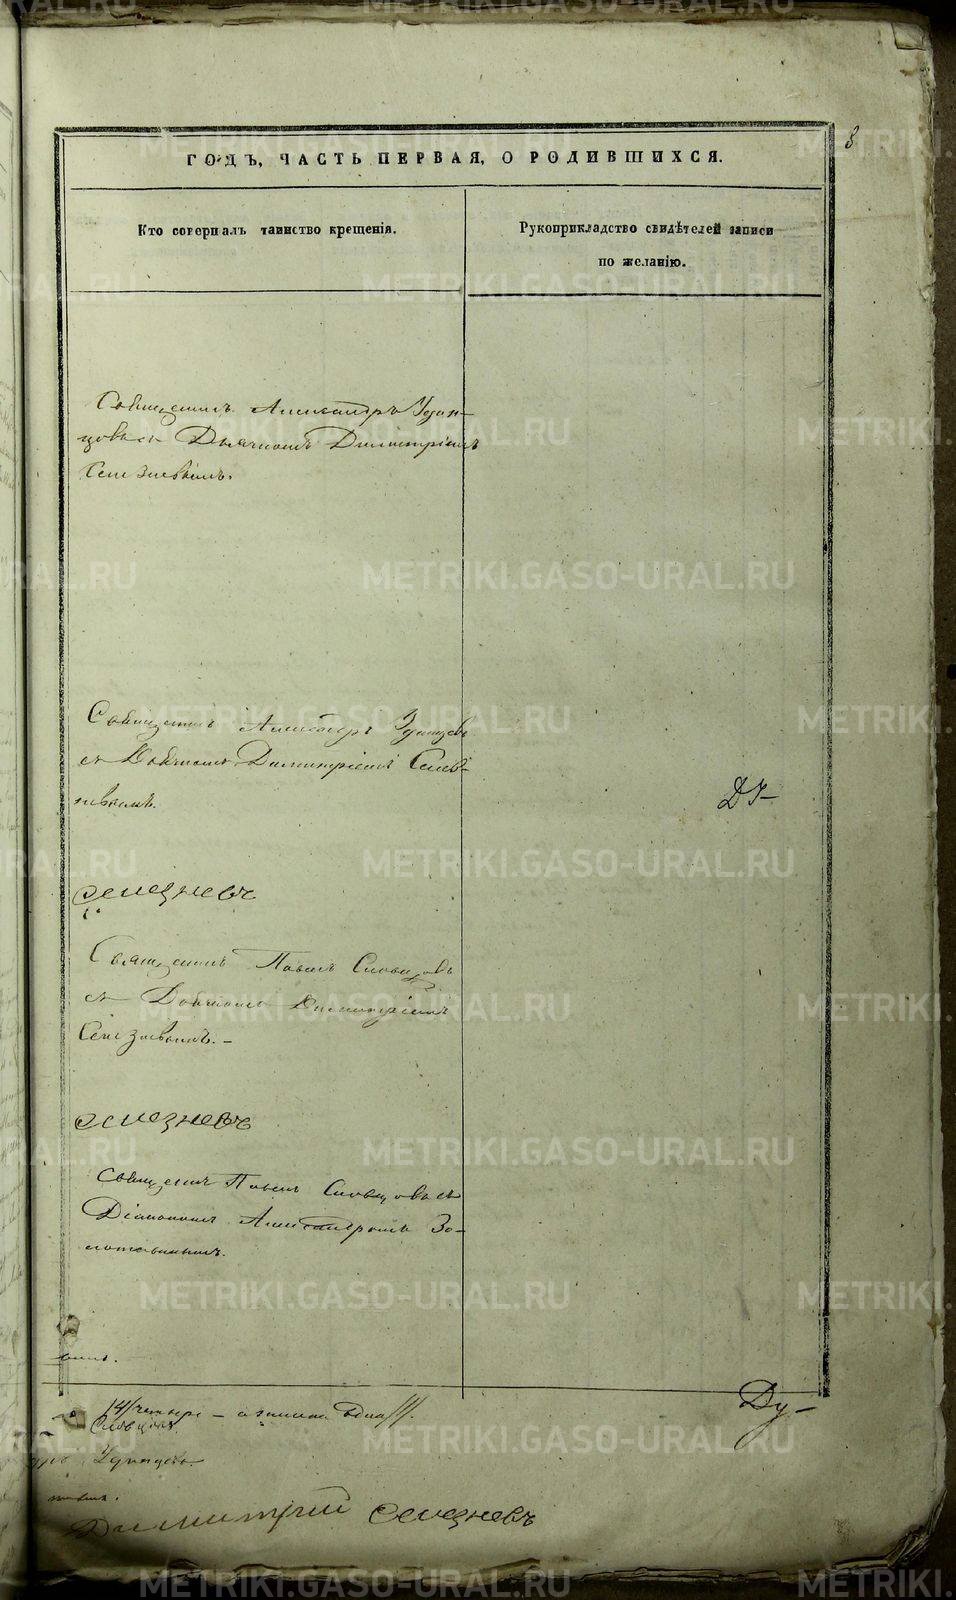 3
ГОДЪ, ЧАСТЬ ПЕРВАЯ, О РОДИВШИХСЯ.
Кто совершалъ таинство крещенія.
Рукоприкладство свидѣтелей записи
по желанію.
Священникъ Александръ Удин-
цовъ съ Дьячкомъ Димитріемъ
Селезневымъ.
Священникъ Александръ Удинцовъ
съ Дьячкомъ Димитріемъ Селез-
невымъ.
Селезневъ
Священникъ Павелъ Словцовъ
съ Дьячкомъ Димитріемъ
Селезневымъ. –
Селезневъ
Священникъ Павелъ Словцовъ съ
Діакономъ Александромъ Зо-
Словцовъ.
Удинцовъ.
Димитрій Селезневъ
METRIKI.GASO-URAL.RU